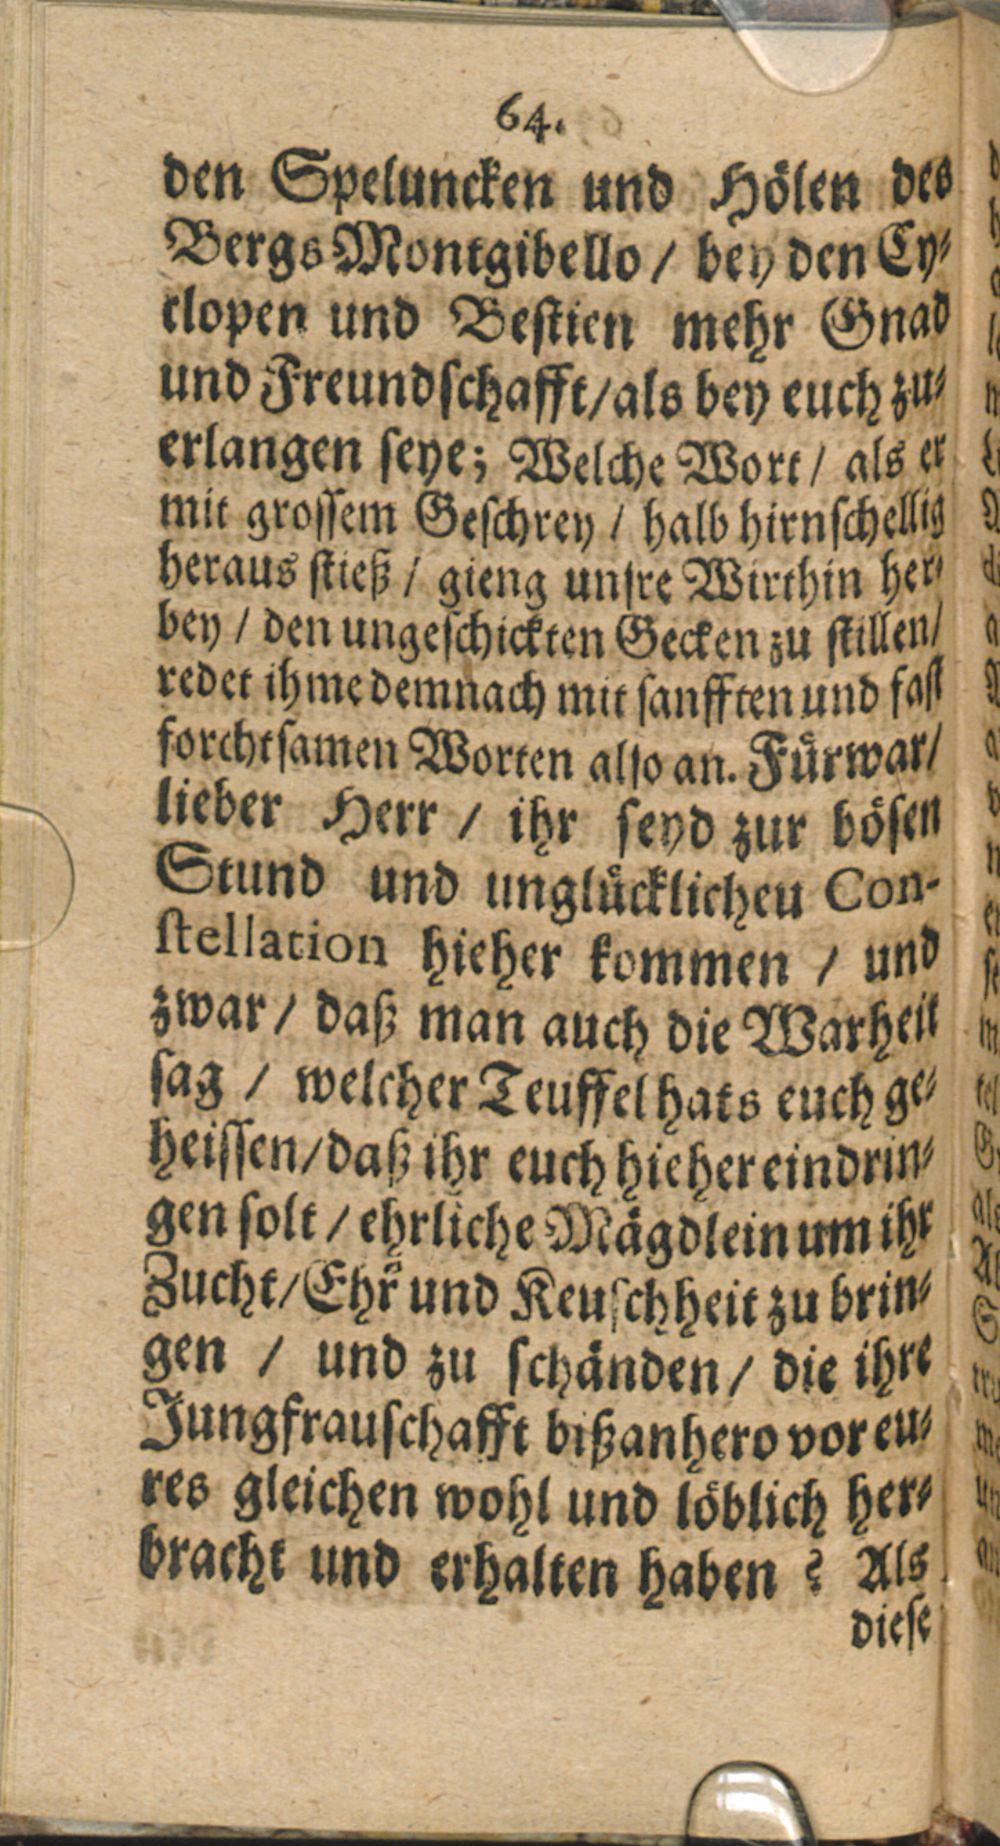 64.
den Speluncken und Hölen des
Bergs Montgibello / bey den Cy⸗
clopen und Bestien mehr Gnad
und Freundschafft / als bey euch zu⸗
erlangen seye; Welche Wort / als er
mit grossem Geschrey / halb hirnschellig
heraus stieß / gieng unsre Wirthin her⸗
bey / den ungeschickten Gecken zu stillen /
redet ihme demnach mit sanfften und fast
forchtsamen Worten also an. Fürwar /
lieber Herr / ihr seyd zur bösen
Stund und unglücklicheu Con-
stellation hieher kommen / und
zwar / daß man auch die Warheit
sag / welcher Teuffel hats euch ge⸗
heissen / daß ihr euch hieher eindrin⸗
gen solt / ehrliche Mägdlein um ihr
Zucht / Ehr̃ und Keuschheit zu brin⸗
gen / und zu schänden / die ihre
Jungfrauschafft bißanhero vor eu⸗
res gleichen wohl und löblich her⸗
bracht und erhalten haben ? Als
diese